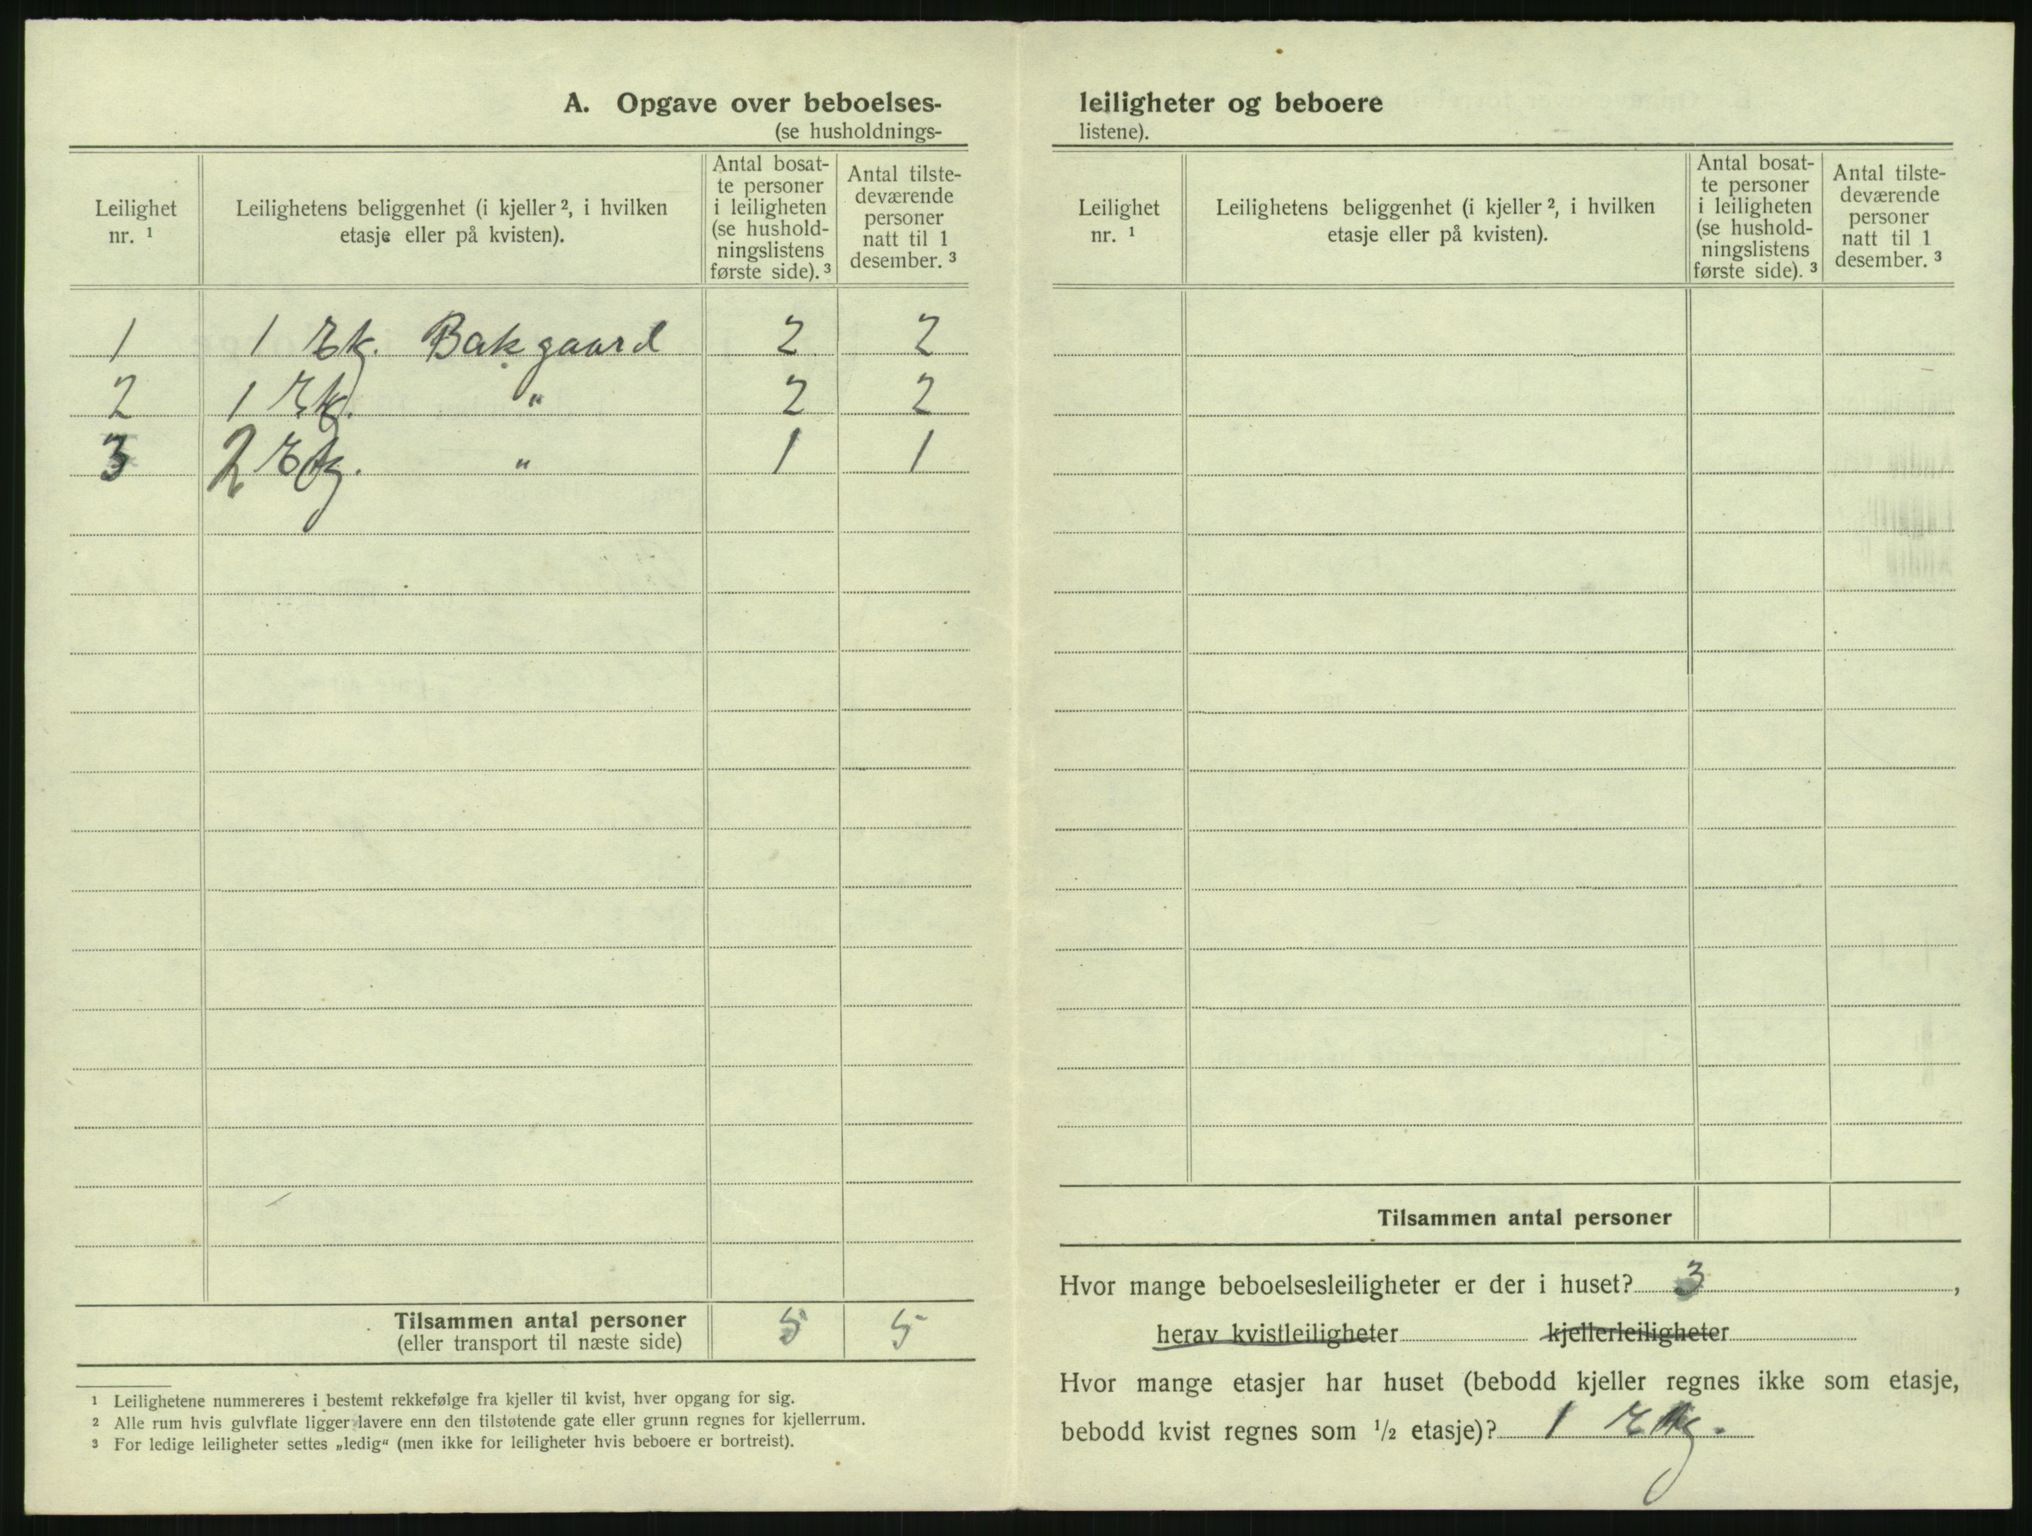 A. Opgave over beboelses-
(se husholdnings-
Leilighet nr. ¹
Leilighetens beliggenhet (i kjeller ², i hvilken etasje eller på kvisten).
Antal bosat-
te personer
i leiligheten
(se hushold-
ningslistens
første side). ³
Antal tilste-
deværende
personer
natt til 1
desember. ³
1 1 Etg. Bakgaard 2 2
2 1 Etg. " 2 2
3 2 Etg. " 1 1
Tilsammen antal personer 5 5
(eller transport til næste side)
¹ Leilighetene nummereres i bestemt rekkefølge fra kjeller til kvist, hver opgang for sig.
² Alle rum hvis gulvflate ligger lavere enn den tilstøtende gate eller grunn regnes for kjellerrum.
³ For ledige leiligheter settes „ledig“ (men ikke for leiligheter hvis beboere er bortreist).
leiligheter og beboere
listene).
Leilighet nr. ¹
Leilighetens beliggenhet (i kjeller ², i hvilken etasje eller på kvisten).
Antal bosat-
te personer
i leiligheten
(se hushold-
ningslistens
første side). ³
Antal tilste-
deværende
personer
natt til 1
desember. ³
Tilsammen antal personer
Hvor mange beboelsesleiligheter er der i huset? 3 ,
herav kvistleiligheter kjellerleiligheter
Hvor mange etasjer har huset (bebodd kjeller regnes ikke som etasje,
bebodd kvist regnes som ½ etasje)? 1 Etg.